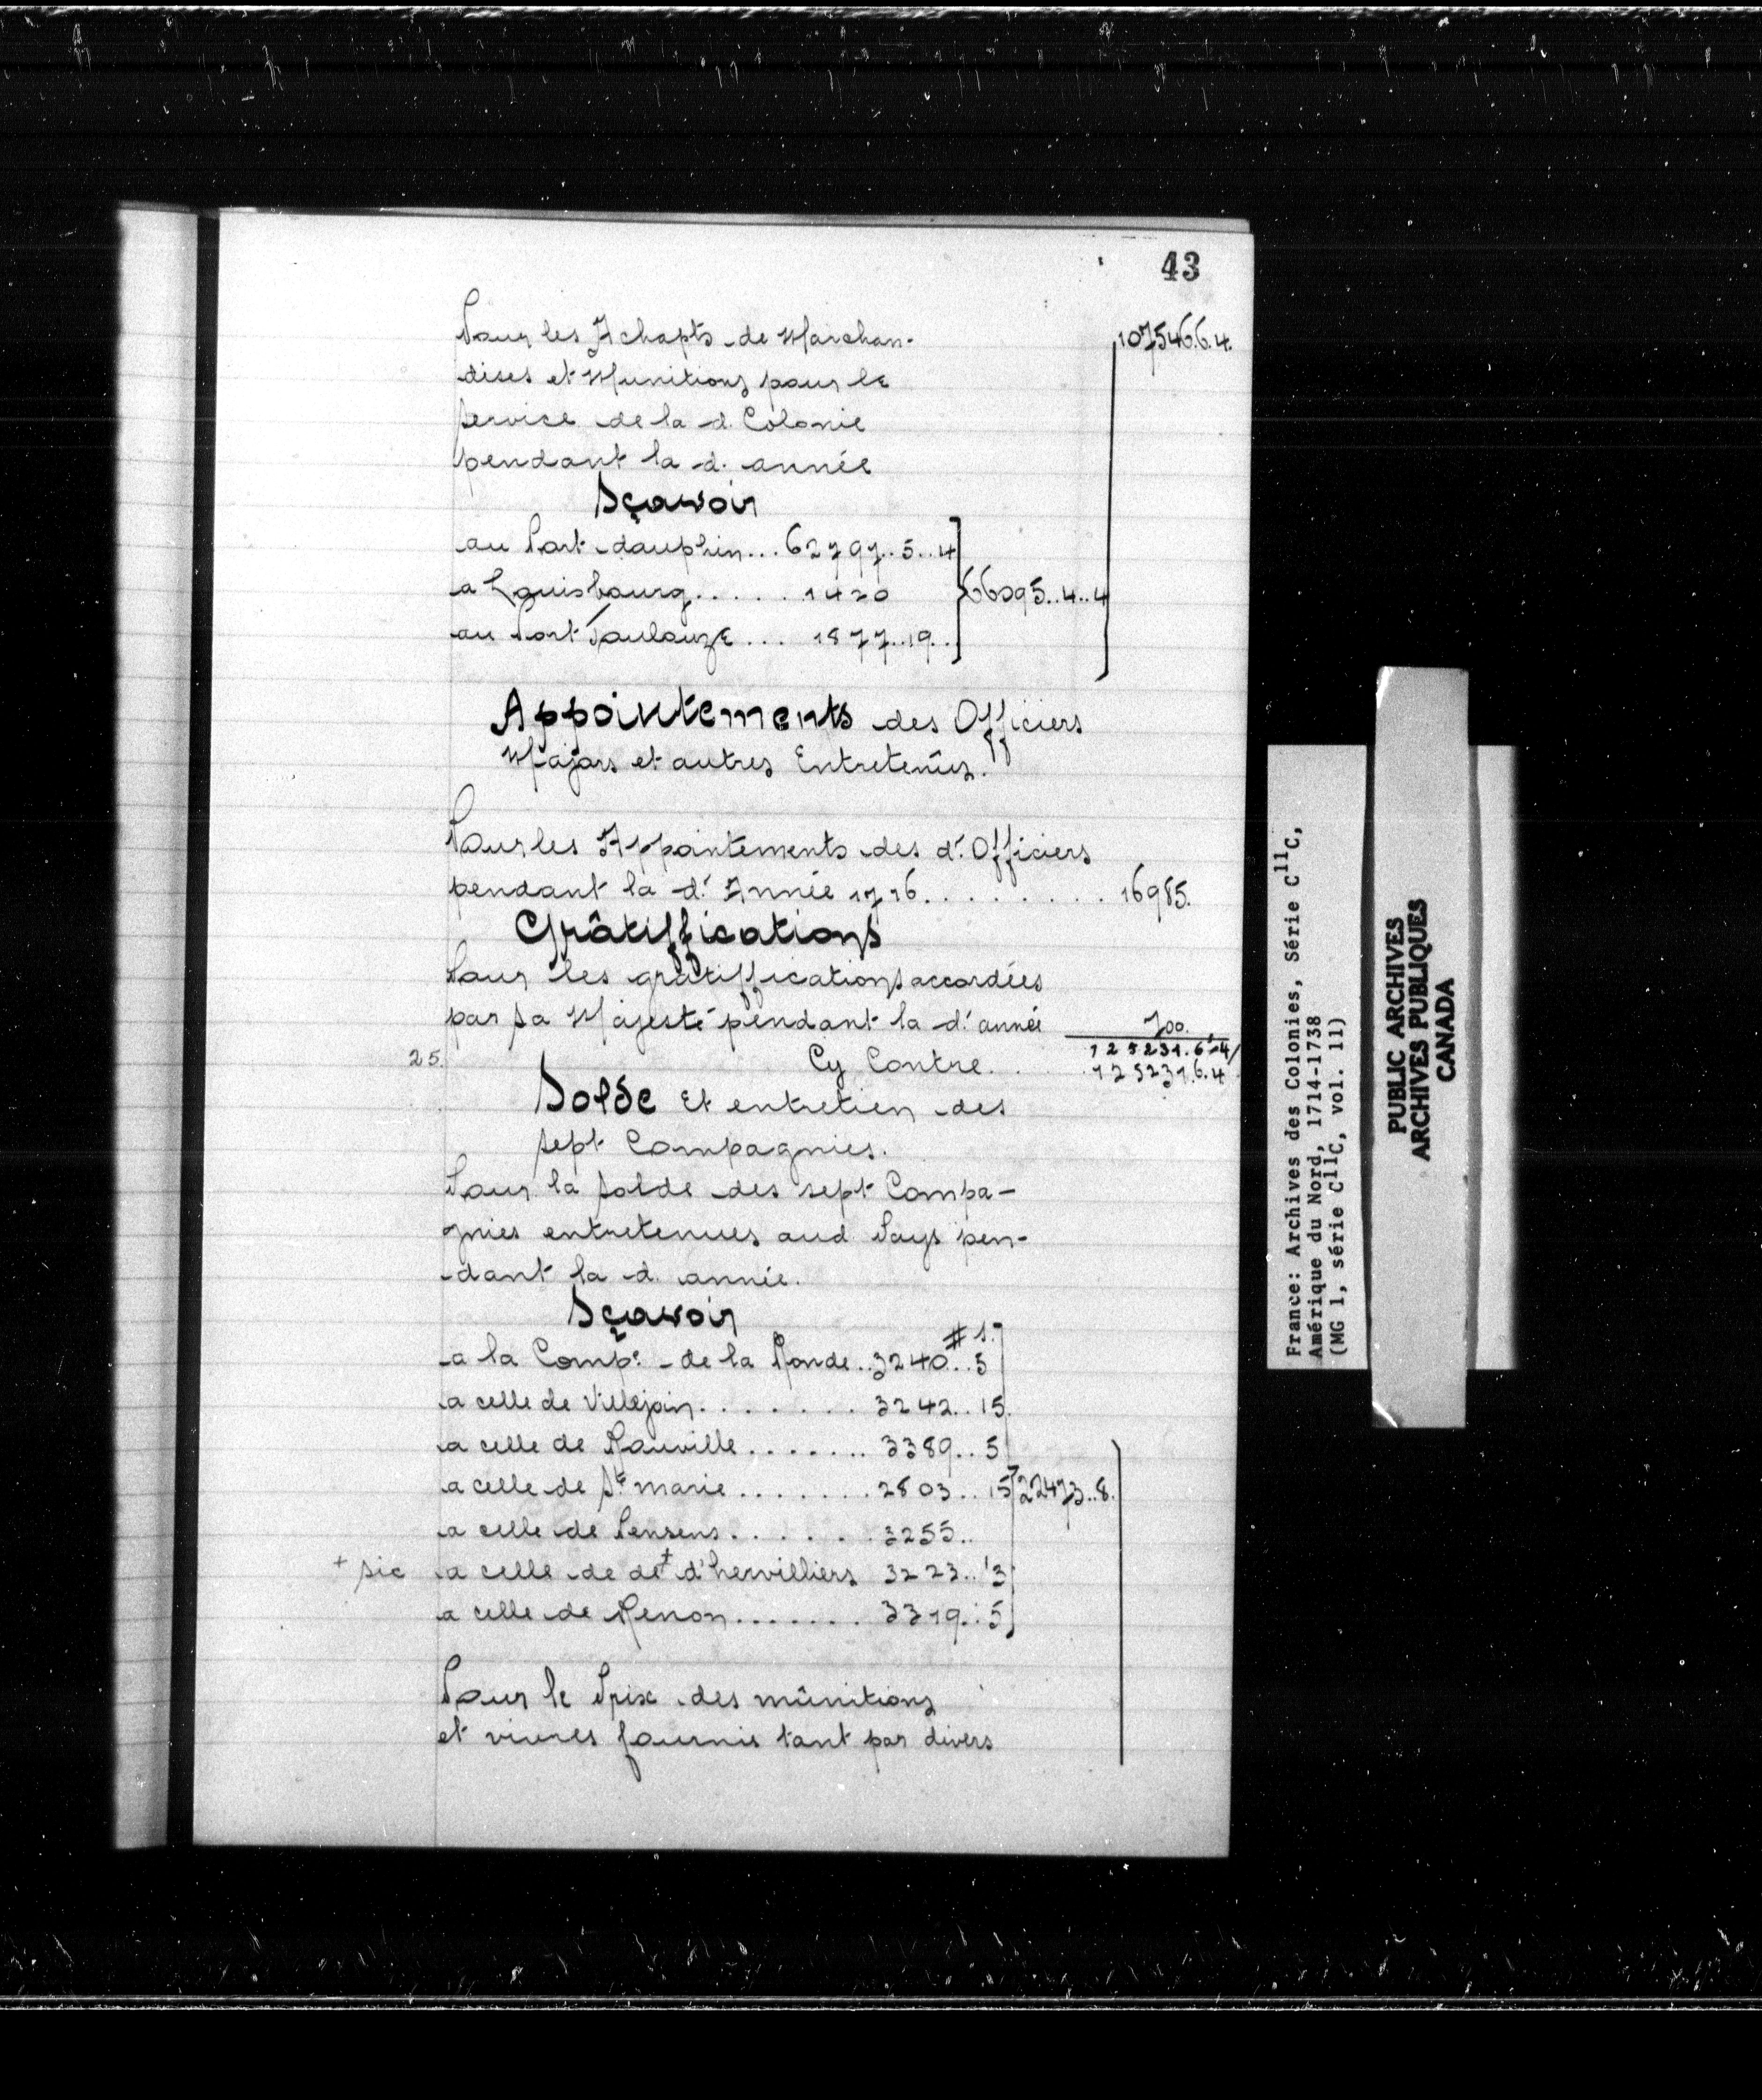 43
Pour les Achapts de Marchan- 107546.6.4.
dises et Munitions pour le
service de la d. Colonie
pendant la d. année
Sçavoir
au Port dauphin... 62797..5..4
a Louisbourg..... 1420 66095..4..4
au Port Toulouze... 1877..19..
Appointements des Officiers
Majors et autres Entretenus.
Pour les Appointements des d. Officiers
pendant la d. Année 1716......... 16985.
Grâtiffications
Pour les gratiffications accordées
par sa Majesté pendant la d. année 700.
125231.6.4
25. Cy Contre... 125231.6.4
Solde Et entretien des
sept Compagnies.
Pour la solde des sept Compa-
gnies entretenues aud Pays pen-
dant la d. année.
Sçavoir
# s.
a la Comp.e de la Ronde..3240..5
a celle de Villejoin........ 3242..15.
a celle de Rouville....... 3389..5
a celle de Ste marie....... 2803..15 22473..8.
a celle de Pensens...... 3255..
+ sic a celle de de+ d'hervilliers 3223..13
a celle de Renon....... 3319..5
Pour le Prix des mûnitions
et vivres fournis tant par divers
France: Archives des Colonies, Série C11C,
Amérique du Nord, 1714-1738
(MG 1, série C11C, vol. 11)
PUBLIC ARCHIVES
ARCHIVES PUBLIQUES
CANADA